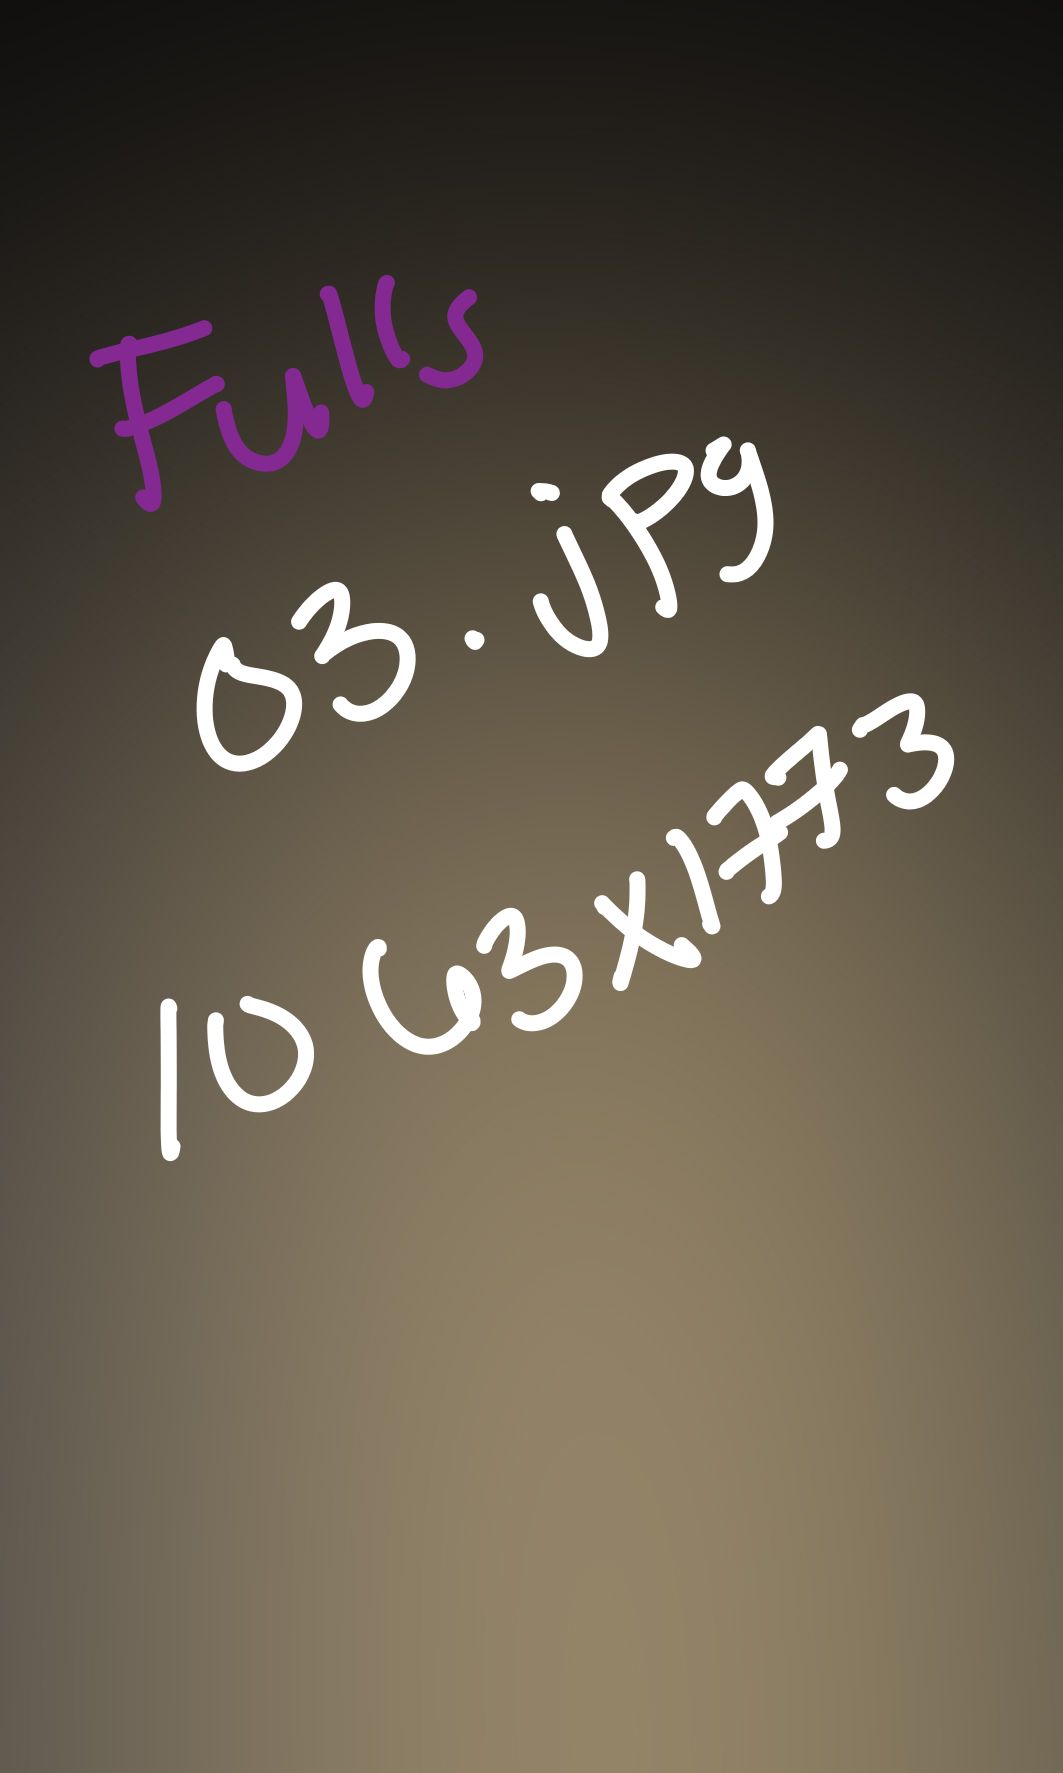 Fulls
03.jpg
1063x1773